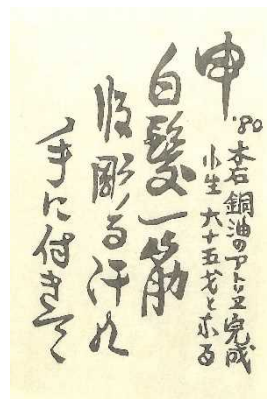 申
'80 木石銅油のアトリエ完成
小生 六十五才と相なる
白髪一筋
版彫る汗の
手に付きて